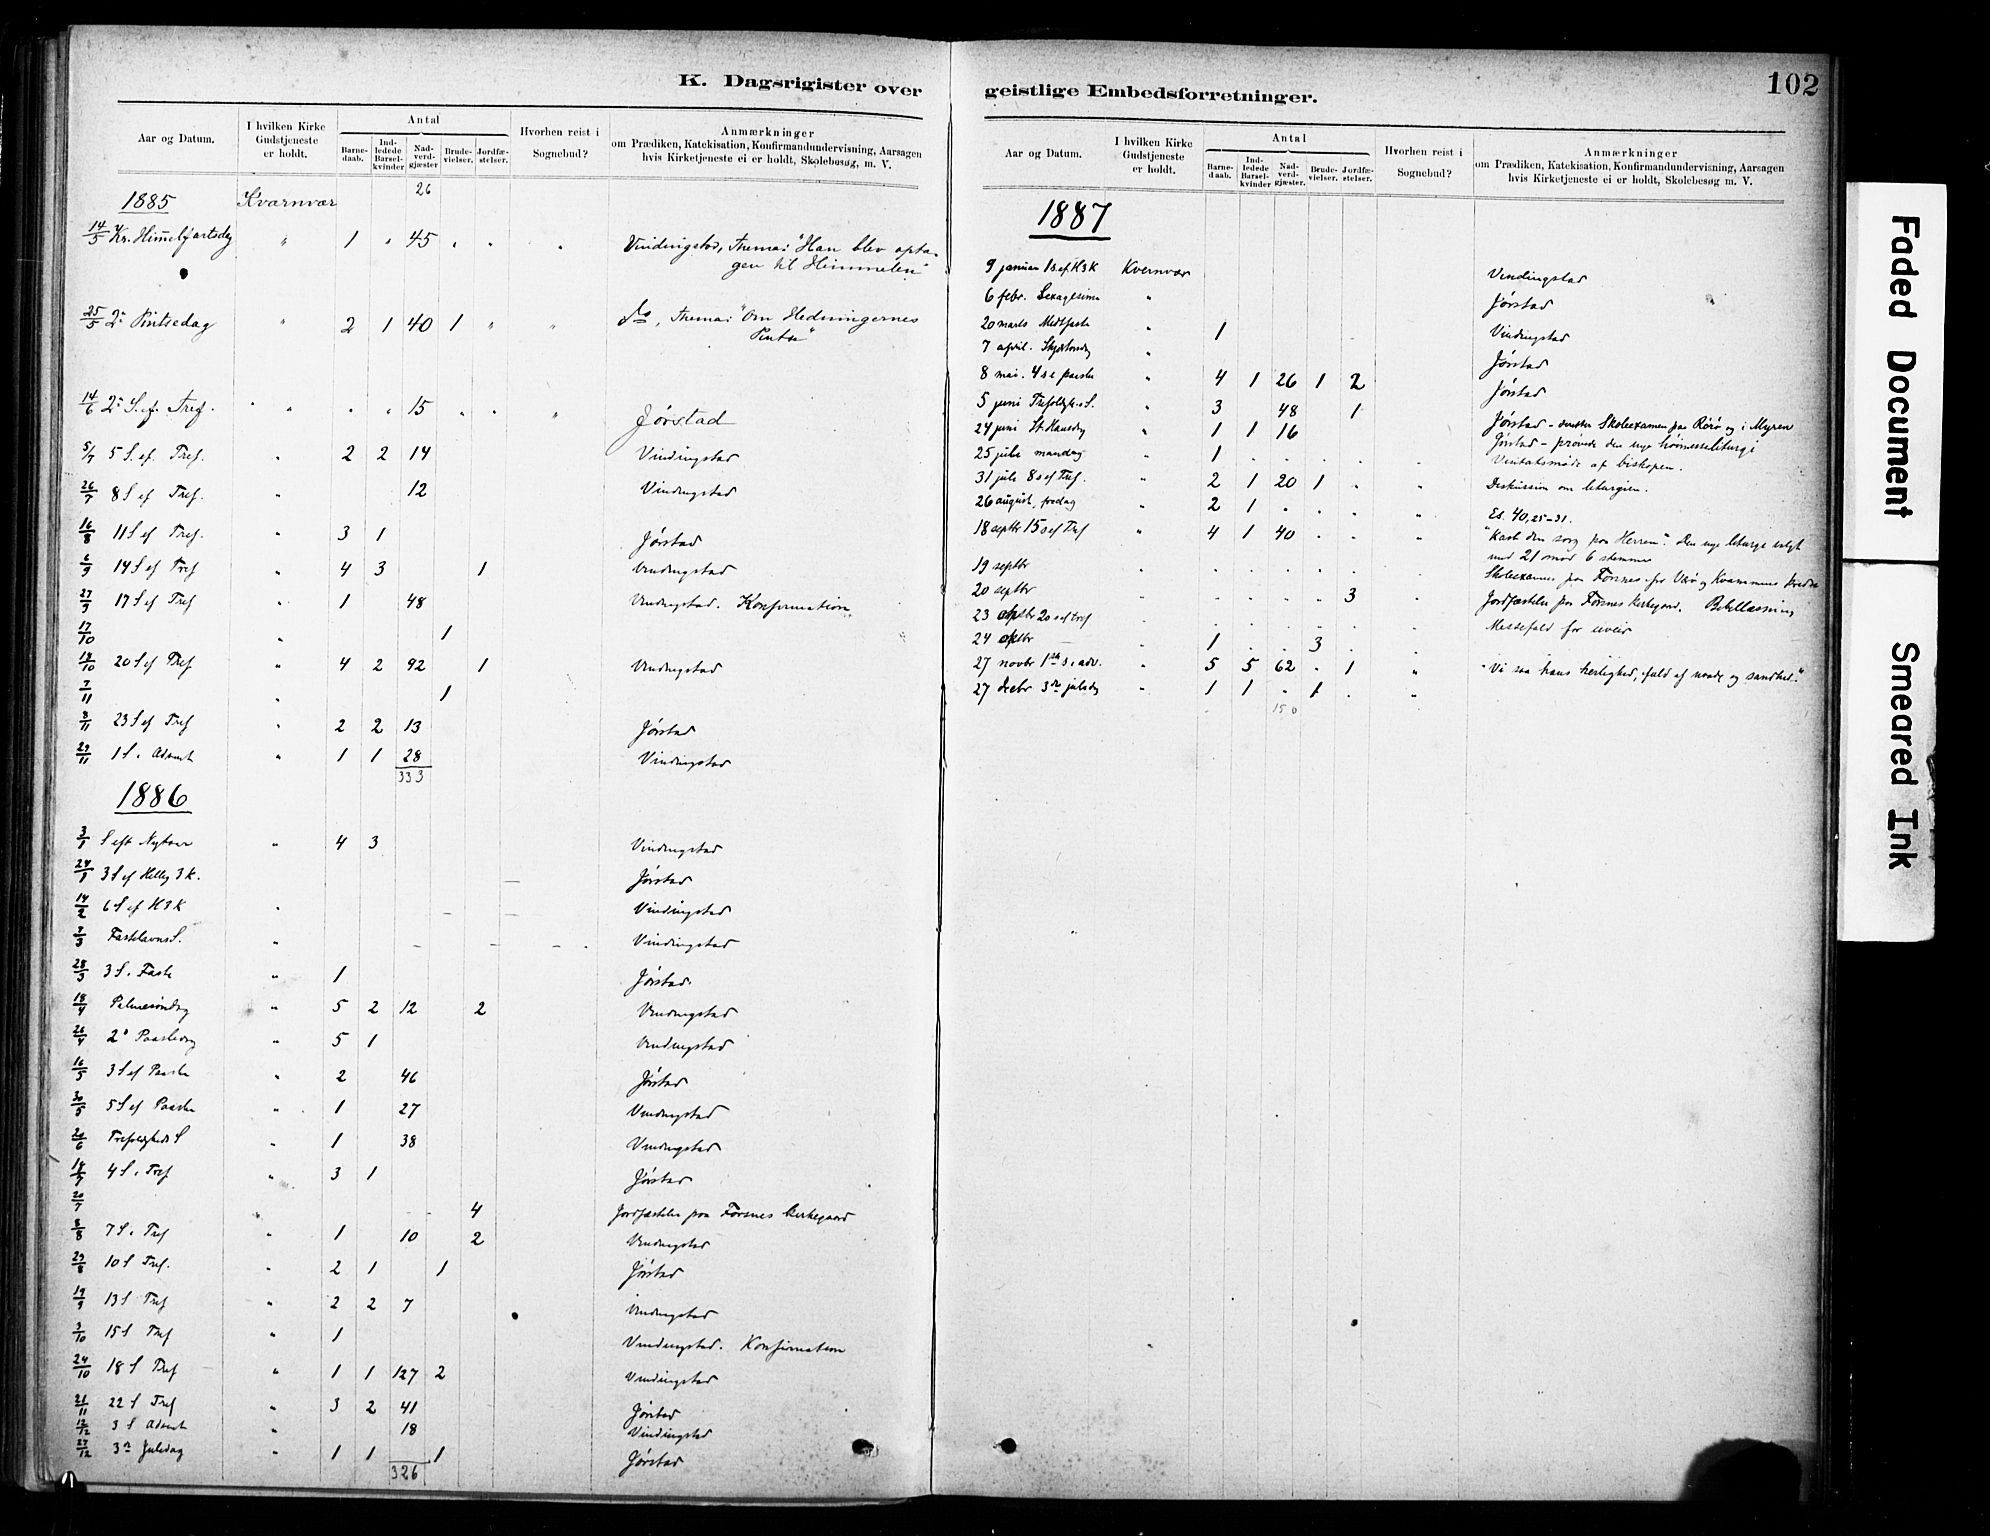 K. Dagsrigister over
Aar og Datum.
I hvilken Kirke Gudstjeneste er holdt.
Antal
Barne-daab.
Ind-ledede Barsel-kvinder
Nad-verd-gjæster
Brude-vielser.
Jordfæ-stelser.
Hvorhen reist i Sognebud?
Anmærkninger
om Prædiken, Katekisation, Konfirmandundervisning, Aarsagen
hvis Kirketjeneste ei er holdt, Skolebesøg, m. V.
1885 Kværnvær 26
14/5 Kr. Himmelfartsdag " 1 " 45 " " " Vindingstad, Thema: "Han blev opta-
gen til Himmelen"
25/5 2n Pintsedag " 2 1 40 1 " " Do, Thema: "Om Hedningernes
Pintse"
14/6 2n S. ef. Tref. " " " 15 " " " Jørstad
5/7 5 S. ef. Tref. " 2 2 14 Vindingstad
26/7 8 S ef Tref. " 12 Vindingstad
16/8 11 S ef Tref. " 3 1 Jørstad
6/9 14 S ef Tref " 4 3 1 Vindingstad
27/9 17 S ef Tref " 1 48 Vindingstad. Konfirmation
17/10 " 1
18/10 20 S ef Tref " 4 2 92 1 Vindingstad
7/11 " 1
8/11 23 S ef Tref " 2 2 13 Jørstad
29/11 1 S. Advent " 1 1 28 Vindingstad
333
1886
3/1 S eft Nytaar " 4 3 Vindingstad
24/1 3 S ef Hellig 3 K. Jørstad
14/2 6 S ef H 3 K " Vindingstad
7/3 Fastelavns S. " Vindingstad
28/3 3 S. Faste " 1 Jørstad
18/4 Palmesøndag " 5 2 12 2 Vindingstad
26/4 2n Paaskedag " 5 1 Vindingstad
16/5 3 S ef Paaske " 2 46 Jørstad
30/5 5 S ef Paaske " 1 27 Vindingstad
20/6 Trefoldigheds S " 1 38 Vindingstad
18/7 4 S. Tref " 3 1 Jørstad
20/7 4 Jordfæstelse paa Forsnes Kirkegaard
8/8 7 S. Tref " 1 10 2 Vindingstad
29/8 10 S Tref. " 2 1 1 Jørstad
19/9 13 S Tref " 2 2 7 Vindingstad
3/10 15 S Tref " 1 Vindingstad. Konfirmation
24/10 18 S Tref " 1 1 127 2 Vindingstad
21/11 22 S Tref " 3 2 41 Jørstad
12/12 3 S Advent " 18 Vindingstad
27/12 3n Juledag 1 1 1 Jørstad
326
geistlige Embedsforretninger.
102
Aar og Datum.
I hvilken Kirke Gudstjeneste er holdt.
Antal
Barne-daab.
Ind-ledede Barsel-kvinder
Nad-verd-gjæster.
Brude-vielser.
Jordfæ-stelser.
Hvorhen reist i Sognebud?
Anmærkninger
om Prædiken, Katekisation, Konfirmandundervisning, Aarsagen
hvis Kirketjeneste ei er holdt, Skolebesøg m. V.
1887
9 januar 1 s. ef. H 3 K Kvernvær Vindingstad
6 febr. Sexagesima " Jørstad
20 marts Midtfaste " 1 Vindingstad
7 april. Skjærtorsdag " Jørstad
8 mai. 4 s e paaske " 4 1 26 1 2 Jørstad
5 juni Trefoldigh. s S. " 3 48 1 Jørstad - derefter Skoleexamen paa Rørø og i Myren
24 juni St. Hansdag " 1 1 16 Jørstad - prøvede den nye høimesseliturgi
25 juli mandag " 1 Visitatsmøde af biskopen.
31 juli 8 s ef Tref. " 2 1 20 1 Diskussion om liturgien.
26 august, fredag 2 1 " Es. 40,25-31.
18 septbr 15 s ef Tref " 4 1 40 "Kast din sorg paa Herren". Den nye liturgi valgt
med 21 mod 6 stemmer
19 septbr Skoleexamen paa Forsnes for og Kvammens kredse
20 septbr 3 Jordfæstelse paa Forsnes kirkegaard. Bibellæsning
23 oktbr 20 s ef tref Messefald for uveir
24 oktbr 1 3
27 novbr 1ste s. i adv. " 5 5 62 1 "Vi saa hans herlighed, fuld af naade og sandhed."
27 decbr 3die juledag " 1 1 1
150
Faded Document
Smeared Ink